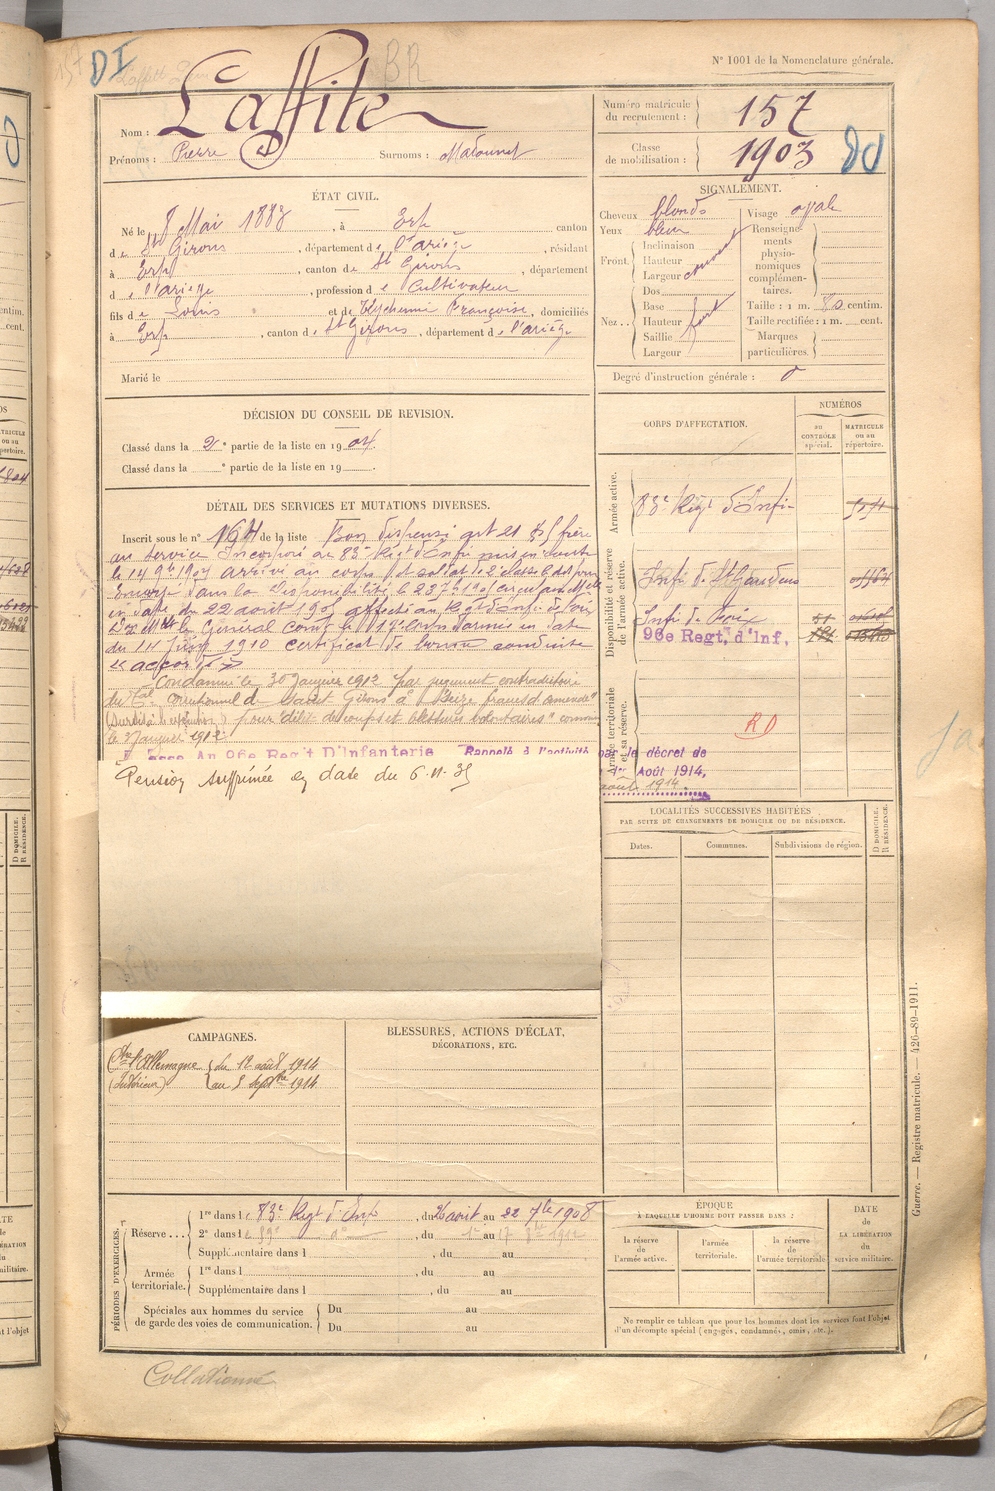 157
DI
BR
N° 1001 de la Nomenclature générale.
Nom : Laffite
Prénoms : Pierre Surnoms :
Numéro matricule du recrutement : 157
Classe de mobilisation : 1903
ÉTAT CIVIL.
Né le 8 Mai 1883, à Erp canton
de St Girons, département de l'ariège, résidant
à Erp, canton de St Girons, département
de l'ariège, profession de Cultivateur
fils de Louis et de Françoise, domiciliés
à Erp, canton de St Girons, département de l'ariège
Marié le
SIGNALEMENT.
Cheveux blonds
Yeux bleus
Front. Inclinaison
Hauteur
Largeur
Dos
Nez... Base
Hauteur fort
Saillie
Largeur
Visage ovale
Renseignements physionomiques complémentaires.
Taille : 1 m. 80 centim.
Taille rectifiée : 1 m. cent.
Marques particulières.
Degré d'instruction générale : 0
DÉCISION DU CONSEIL DE REVISION.
Classé dans la 2e partie de la liste en 1904.
Classé dans la e partie de la liste en 19 .
CORPS D'AFFECTATION.
NUMÉROS
au CONTRÔLE spécial.
MATRICULE ou au répertoire.
Armée active.
83e Régt d'Infie
Disponibilité et réserve de l'armée active.
Infie de St Gaudens
Infie de Foix
96e Regt. d'Inf.
Armée territoriale et sa réserve.
RD
DÉTAIL DES SERVICES ET MUTATIONS DIVERSES.
Inscrit sous le n° de la liste Bon dispensé art 21 frère
au service Incorporé au 83e Régt d'Infie mis en route
le 14 9bre 1904 arrivé au corps et soldat de 2e classe le dit jour
Envoyé dans la Disponibilité le 23 7bre 1905
en date du 22 août 1905 affecté au Régt d'Infie de Foix
le Général Comt le 17e Corps d'armée en date
du 14 Juin 1910 certificat de bonne conduite
"accordé"
Condamné le 30 Janvier 1912 par jugement contradictoire
du Tal correctionnel de Saint Girons à Seize francs d'amende
(Sursis à l'exécution) pour "délit de coups et blessures volontaires" commis
le Janvier 1912.
Passe Au 96e Reg't D'Infanterie Rappelé à l'activité par le décret de
1er Août 1914.
août 1914.
Pension supprimée en date du 6.11.35
LOCALITÉS SUCCESSIVES HABITÉES
PAR SUITE DE CHANGEMENTS DE DOMICILE OU DE RÉSIDENCE.
Dates.
Communes.
Subdivisions de région.
D DOMICILE.
R RÉSIDENCE.
CAMPAGNES.
Ctre l'Allemagne du 12 août 1914
(Intérieur) au 5 Septbre 1914
BLESSURES, ACTIONS D'ÉCLAT,
DÉCORATIONS, ETC.
PÉRIODES D'EXERCICES.
Réserve... 1re dans le 83e Régt d'Infie, du 26 août au 22 7bre 1908
2e dans le 59e do, du 1er au 17 8bre 1912
Supplémentaire dans l , du au
Armée territoriale. 1re dans l , du au
Supplémentaire dans l , du au
Spéciales aux hommes du service de garde des voies de communication. Du au
Du au
ÉPOQUE
À LAQUELLE L'HOMME DOIT PASSER DANS :
la réserve de l'armée active.
l'armée territoriale.
la réserve de l'armée territoriale
DATE de LA LIBÉRATION du service militaire.
Ne remplir ce tableau que pour les hommes dont les services font l'objet
d'un décompte spécial (engagés, condamnés, omis, etc.).
Guerre. — Registre matricule. — 426-89-1911.
Collationné